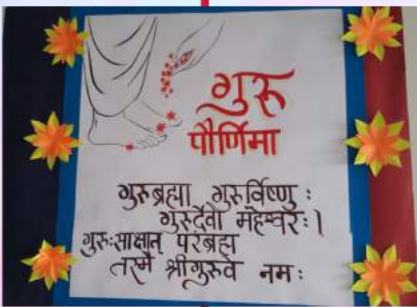 गुरु
पौर्णिमा
गुरुब्रह्मा गुरुर्विष्णुः
गुरुर्देवो महेश्वरः।
गुरुःसाक्षात् परब्रह्म
तस्मै श्रीगुरुवे नमः